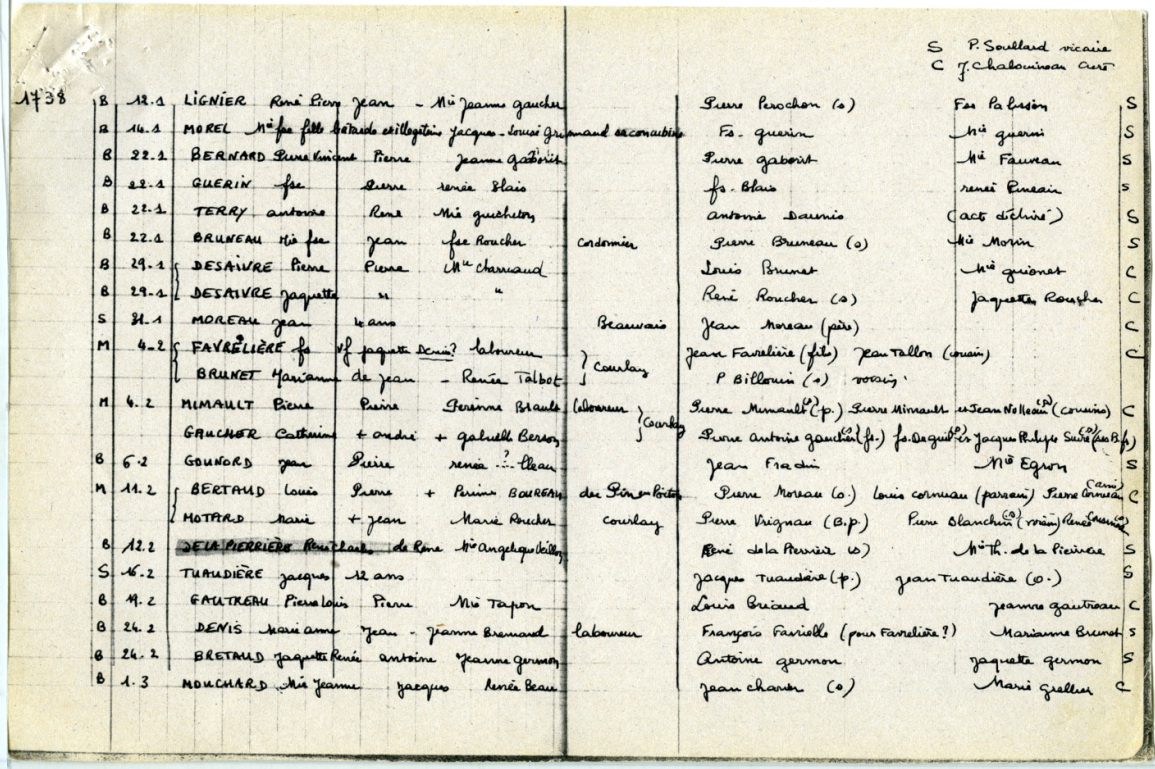 S P. Soullard vicaire
C J. Chalouineau curé
1738 B 12.1 LIGNIER René Pierre Jean - Mie Jeanne gaucher Pierre Perochon (o) Fse Palusson S
B 14.1 MOREL Mie fse fille bâtarde et illégitime Jacques - Louise concubine Fs. guerin Mie guerin S
B 22.1 BERNARD Pierre Vincent Pierre Jeanne gaborit Pierre gaborit Mie Fauveau S
B 22.1 GUERIN fse Pierre renée Blais fs. Blais renée Pineau S
B 22.1 TERRY antoine René Mie guicheton antoine Daunis (act déchiré) S
B 22.1 BRUNEAU Mie fse Jean fse Roucher cordonnier Pierre Bruneau (o) Mie Morin S
B 29.1 DESAIVRE Pierre Pierre Mie Charruaud Louis Brunet Mie guionet C
B 29.1 DESAIVRE Jaquette " " René Roucher (o) Jaquette Roucher C
S 31.1 MOREAU Jean 4 ans Beauvais Jean Moreau (père) C
M 4-2 FAVRELIÈRE fs Vf Jaquette Denis? laboureur Jean Favrelière (fils) Jean Tallon (cousin) C
BRUNET Marianne de Jean - Renée Talbot } Courlay P Billouin (o) voisin
M 4.2 MIMAULT Pierre Pierre Perinne Brault laboureur Pierre Mimault (o) (p.) Pierre Mimault et Jean (o) (cousins) C
GAUCHER Catherine + andré + gabrielle } Courlay Pierre Antoine gaucher (o) (fs.) Jacques Philippe
B 6-2 GOUNORD Jean Pierre renée ? Jean Fradin Mie Egron S
M 11.2 BERTAUD Louis Pierre + Perinne BOUREAU du Pin en Poitou Pierre Moreau (o.) Louis corneau (parrain) Pierre Corneau (ami) C
MOTARD Marie + Jean Marie Roucher courlay Pierre Vrignau (B.p.) Pierre Blanchin (o) (voisin) René
B 12.2 DE LA PIERRIÈRE René Charles de René Mie Angelique René de la Pierrière (o) Mie Th. de la Pierrière S
S 16.2 TUAUDIÈRE Jacques 12 ans Jacques Tuaudière (p.) Jean Tuaudière (o.) S
B 19.2 GAUTREAU Pierre Louis Pierre Mie Tapon Louis Briaud Jeanne gautreau C
B 24.2 DENIS Marianne Jean - Jeanne Bremaud laboureur François Favielle (pour Favrelière?) Marianne Brunet S
B 24.2 BRETAUD Jaquette Renée antoine Jeanne germon Antoine germon Jaquette germon S
B 1.3 MOUCHARD Mie Jeanne Jacques Renée Beau Jean charier (o) Marie grellier C